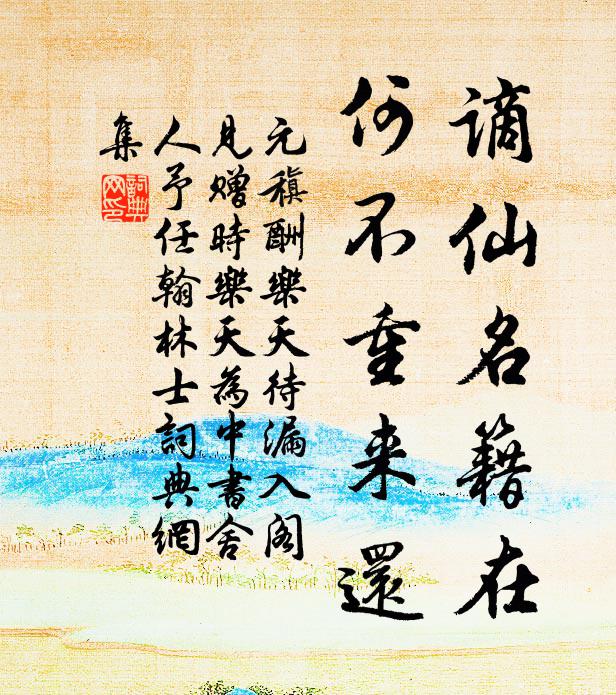 謫仙名籍在
何不重来還
元稹酬樂天待漏入阁
見贈時樂天為中書舍
人予任翰林士詞典網
集
詞典网印